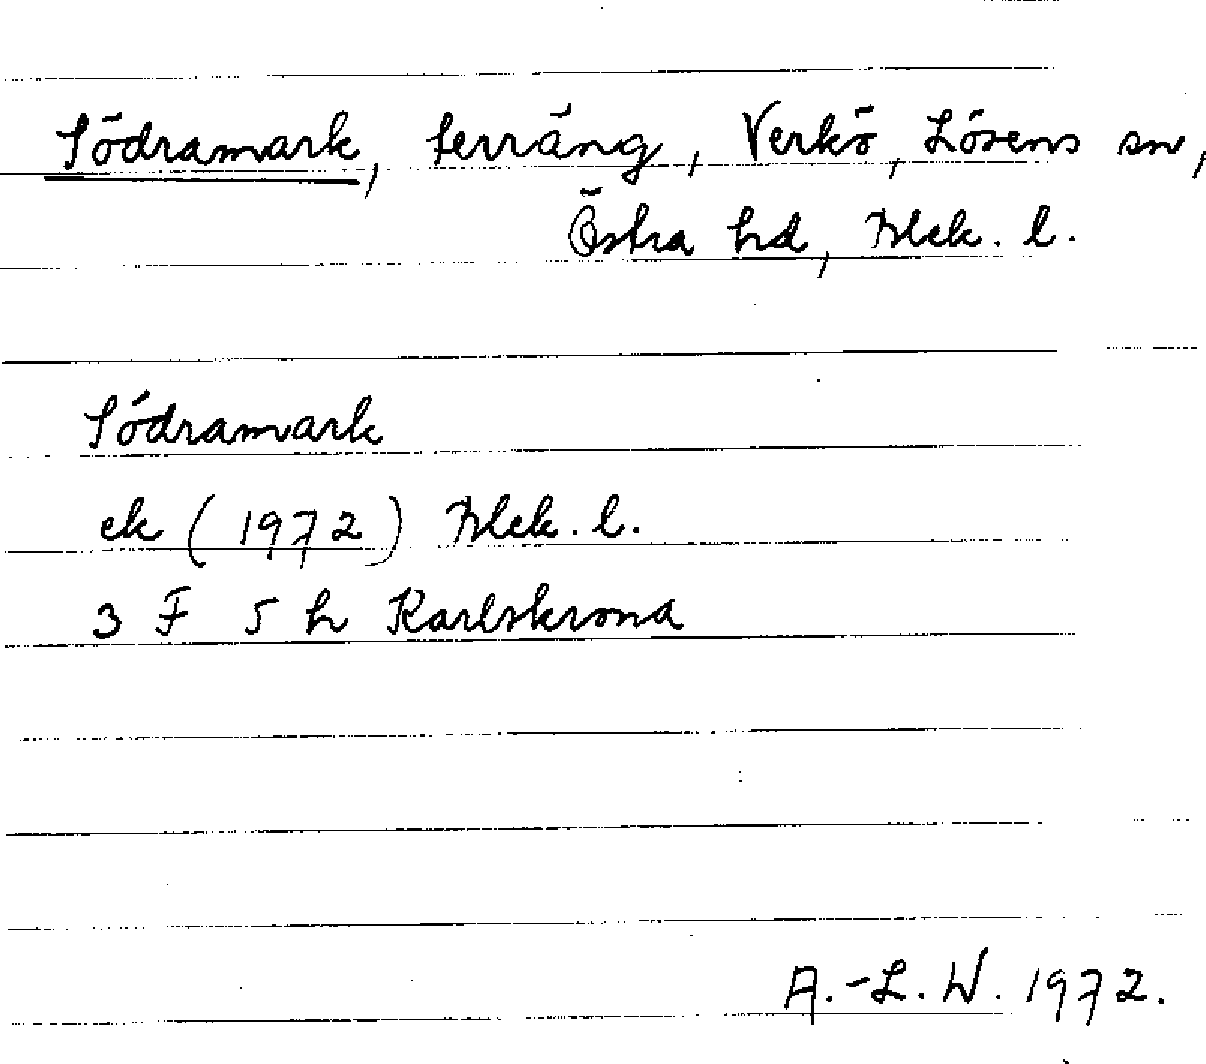 Södramark, terräng, Verkö, Lösens sn,
Östra hd, Blek. l.
Södramark
ek (1972) Blek. l.
3 F 5 h Karlskrona
A.-L. W. 1972.